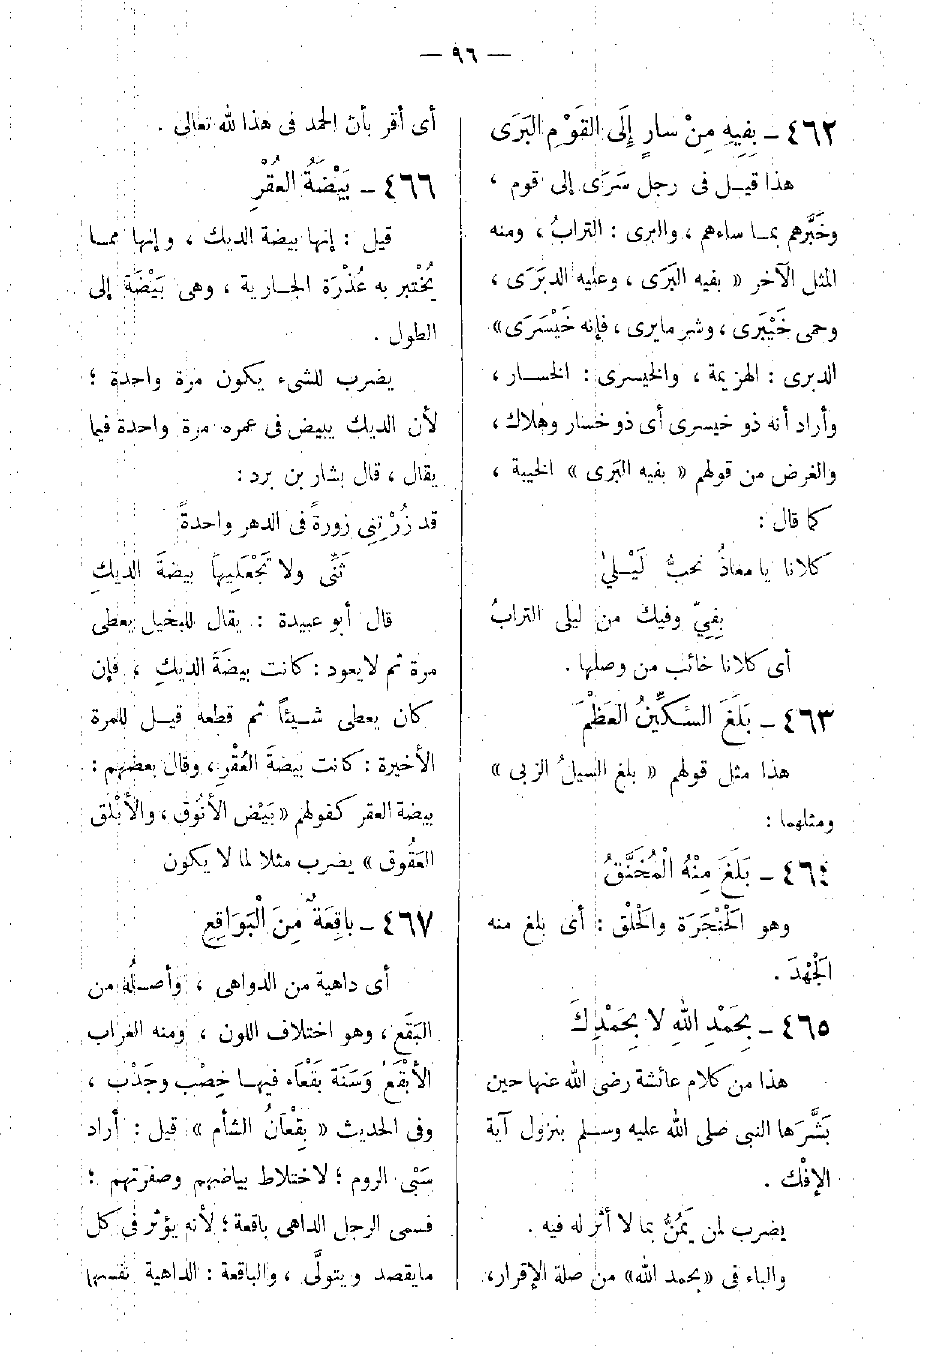 — ٩٦ —
٤٦٢ - بِفِيهِ مِنْ سارٍ إِلَى القَوْمِ البَرَى
هذا قيل فى رجل سَرَى إلى قوم ،
وخَبَّرهم بما ساءهم ، والبرى : الترابُ ، ومنه
المثل الآخر « بفيه البَرَى ، وعليه الدبَرَى ،
وحمى خَيْبَرى ، وشر مايرى ، فإنه خَيْسَرَى»
الدبرى : الهزيمة ، والخيسرى : الخسار ،
وأراد أنه ذو خيسرى أى ذو خسار وهلاك ،
والغرض من قولهم « بفيه البَرى » الخيبة ،
كما قال :
كلانا يا معاذُ نحبُّ لَيْلىٰ
بِفِيّ وفيك من ليلى الترابُ
أى كلانا خائب من وصلها .
٤٦٣ - بَلَغَ السِّكِّينُ العَظْمَ
هذا مثل قولهم « بلغ السيلُ الزبى »
ومثلهما :
٤٦٤ - بَلَغَ مِنْهُ الْمُخَنَّقُ
وهو الْحَنْجَرَة والْحَلْق : أى بلغ منه
الْجَهْدَ .
٤٦٥ - بِحَمْدِ اللهِ لا بِحَمْدِكَ
هذا من كلام عائشة رضى الله عنها حين
بَشَّرَها النبى صلى الله عليه وسلم بنزول آية
الإفْك .
يضرب لمن يَمُنُّ بما لا أثر له فيه .
والباء فى «بحمد الله» من صلة الإقرار،
أى أقر بأن الحمد فى هذا لله تعالى .
٤٦٦ - بَيْضَةُ العُقْرِ
قيل : إنها بيضة الديك ، وإنها مما
يُخْتبر به عُذْرَة الجارية ، وهى بَيْضَة إلى
الطول .
يضرب للشىء يكون مرة واحدة ؛
لأن الديك يبيض فى عمره مرة واحدة فيما
يقال ، قال بشار بن برد :
قد زُرْتِنِى زورةً فى الدهر واحدةً
ثَنِّى ولا تَجْعَلِيهاَ بيضةَ الديكِ
قال أبو عبيدة : يقال للبخيل يعطى
مرة ثم لايعود : كانت بيضَةَ الديكِ ، فإن
كان يعطى شيئاً ثم قطعه قيل للمرة
الأخيرة : كانت بيضةَ العُقْرِ ، وقال بعضهم :
بيضة العقر كقولهم « بَيْض الأنُوق ، والأبْلَق
العَقُوق » يضرب مثلا لما لا يكون
٤٦٧ - باقِعَةٌ مِنَ الْبَوَاقِعِ
أى داهية من الدواهى ، وأصلُه من
البَقَع ، وهو اختلاف اللون ، ومنه الغراب
الأبْقَعُ وَسَنَة بَقْعَاء فيها خِصْب وجَدْب ،
وفى الحديث « بِقْعَانُ الشأم » قيل : أراد
سَبْى الروم ؛ لاختلاط بياضهم وصفرتهم ؛
فسمى الرجل الداهى باقعة ؛ لأنه يؤثر فى كل
مايقصد ويتولَّى ، والباقعة : الداهية نفسها